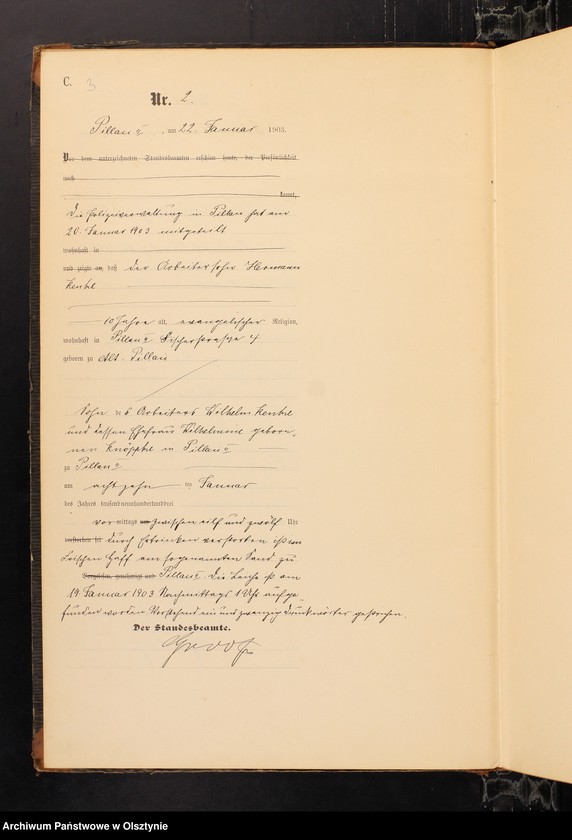 C. 3
Nr. 2.
Pillau II, am 22. Januar 1903.
Vor dem unterzeichneten Standesbeamten erschien heute, der Persönlichkeit
nach
kannt,
Die Polizeiverwaltung in Pillau hat am
20. Januar 1903 mitgeteilt
wohnhaft in
und zeigte an, daß der Arbeitersohn Hermann
10 Jahre alt, evangelischer Religion,
wohnhaft in Pillau II Fischerstraße 4
geboren zu Alt-Pillau
Sohn des Arbeiters Wilhelm
und dessen Ehefrau Wilhelmine gebore-
nen in Pillau II
zu Pillau II
am achtzehn ten Januar
des Jahres tausendneunhundertunddrei
vor mittags um zwischen elf und zwölf Uhr
verstorben sei durch Ertrinken verstorben ist im
Haff am sogenannten zu
Pillau. Die Leiche ist am
19. Januar 1903 Nachmittags 1 Uhr aufge-
funden worden. Vorstehend ein und zwanzig Druckworte gestrichen.
Der Standesbeamte.
Archiwum Państwowe w Olsztynie